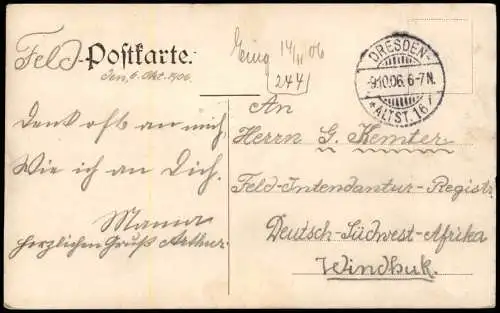 Feld-Postkarte.
Den, 6. Okt. 1906.
Eing 14/11 06
244
DRESDEN-
9.10.06. 6-7N.
*ALTST. 16*
Denk oft an mich
Wie ich an Dich.
Mama
herzlichen Gruß Arthur.
An
Herrn G. Kemter
Feld-Intendantur-Registr
Deutsch-Südwest-Afrika
Windhuk.